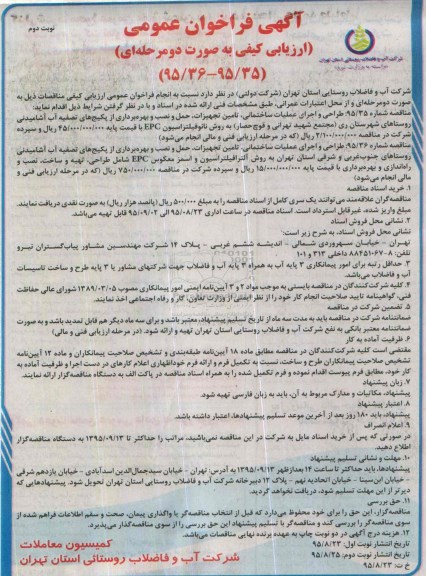 نوبت دوم
آگهی فراخوان عمومی
(ارزیابی کیفی به صورت دومرحله‌ای)
(۹۵/۳۶-۹۵/۳۵)
شرکت آب و فاضلاب روستایی استان تهران
شرکت آب و فاضلاب روستایی استان تهران (شرکت دولتی) در نظر دارد نسبت به انجام فراخوان عمومی ارزیابی کیفی مناقصات ذیل به
صورت دومرحله‌ای و از محل اعتبارات عمرانی، طبق مشخصات فنی ارائه شده در اسناد و با در نظر گرفتن شرایط ذیل اقدام نماید:
مناقصه شماره ۹۵/۳۵: طراحی و اجرای عملیات ساختمانی، تامین تجهیزات، حمل و نصب و بهره‌برداری از پکیج‌های تصفیه آب آشامیدنی
روستاهای شهرستان ری (مجتمع شهید تهرانی و قوچ‌حصار) به روش نانوفیلتراسیون EPC با قیمت پایه ۴۵/۰۰۰/۰۰۰/۰۰۰ ریال و سپرده
شرکت در مناقصه ۲/۱۰۰/۰۰۰/۰۰۰ ریال (که در مرحله ارزیابی فنی و مالی انجام می‌شود)
مناقصه شماره ۹۵/۳۶: طراحی و اجرای عملیات ساختمانی، تامین تجهیزات، حمل و نصب و بهره‌برداری از پکیج‌های تصفیه آب آشامیدنی
روستاهای جنوب‌غربی و شرقی استان تهران به روش آلترافیلتراسیون و اسمز معکوس EPC شامل طراحی، تهیه و ساخت، نصب و
راه‌اندازی و بهره‌برداری با قیمت پایه ۱۵/۰۰۰/۰۰۰/۰۰۰ ریال و سپرده شرکت در مناقصه ۷۵۰/۰۰۰/۰۰۰ ریال (که در مرحله ارزیابی فنی و
مالی انجام می‌شود)
۱. خرید اسناد مناقصه
مناقصه‌گران علاقه‌مند می توانند یک سری کامل از اسناد مناقصه را به مبلغ ۵۰۰/۰۰۰ ریال (پانصد هزار ریال) به صورت نقدی دریافت نمایند.
مبلغ واریز شده، غیرقابل استرداد است. اسناد مناقصه در ساعت اداری ۹۵/۰۸/۲۳ الی ۹۵/۰۹/۰۲ قابل تهیه می‌باشد.
۲. نشانی محل فروش اسناد
نشانی محل فروش اسناد، به شرح زیر است:
تهران - خیابان سهروردی شمالی - اندیشه ششم غربی - پلاک ۱۴ شرکت مهندسین مشاور پیاب‌گستران نیرو
تلفن: ۸-۸۸۴۵۱۰۶۷ داخلی ۳۱۳ و ۱۰۱
۳. حداقل رتبه برای امور پیمانکاری ۳ پایه آب به همراه ۳ پایه آب و فاضلاب جهت شرکتهای مشاور یا ۳ پایه طرح و ساخت تاسیسات
آب و فاضلاب می‌باشد.
۴. کلیه شرکت‌کنندگان در مناقصه بایستی به موجب مواد ۲ و ۳ آیین‌نامه ایمنی امور پیمانکاری مصوب ۱۳۸۹/۰۳/۰۵ شورای عالی حفاظت
فنی، گواهینامه تایید صلاحیت انجام کار خود را از نظر ایمنی از وزارت تعاون، کار و رفاه اجتماعی اخذ نمایند.
۵. تضمین شرکت در مناقصه
ضمانتنامه شرکت در مناقصه باید به مدت سه ماه از تاریخ تسلیم پیشنهاد، معتبر باشد و برای سه ماه دیگر هم قابل تمدید باشد و به صورت
ضمانتنامه معتبر بانکی به نفع شرکت آب و فاضلاب روستایی استان تهران تهیه و ارائه شود. (در مرحله ارزیابی فنی و مالی)
۶. ظرفیت آماده به کار
مقتضی است کلیه شرکت‌کنندگان در مناقصه مطابق ماده ۱۸ آیین‌نامه طبقه‌بندی و تشخیص صلاحیت پیمانکاران و ماده ۱۲ آیین‌نامه
تشخیص صلاحیت پیمانکاران طرح و ساخت، نسبت به تکمیل فرم و ارائه فرم خوداظهاری اعلام کارهای در دست اجرا و ظرفیت آماده به
کار خود، مطابق فرم پیوست اقدام نموده و فرم تکمیل شده را به همراه اسناد مناقصه در پاکت الف به دستگاه مناقصه‌گزار ارائه نمایند.
۷. زبان پیشنهاد
پیشنهاد، مکاتبات و مدارک مربوط به آن، باید به زبان فارسی تهیه شود.
۸. اعتبار پیشنهاد
پیشنهاد، باید ۱۸۰ روز بعد از آخرین موعد تسلیم پیشنهادها، اعتبار داشته باشد.
۹. اعلام انصراف
در صورتی که پس از خرید اسناد مایل به شرکت در این مناقصه نمی‌باشید، مراتب را حداکثر تا ۱۳۹۵/۰۹/۱۳ به دستگاه مناقصه‌گزار
اطلاع دهید.
۱۰. مهلت و نشانی تسلیم پیشنهاد
پیشنهادها، باید حداکثر تا ساعت ۱۴ بعدازظهر ۱۳۹۵/۰۹/۱۳ به آدرس: تهران - خیابان سیدجمال‌الدین اسدآبادی - خیابان یازدهم شرقی
- خیابان ابن‌سینا - خیابان اتحادیه نهم - پلاک ۱۲ دبیرخانه شرکت آب و فاضلاب روستایی استان تهران تحویل شود. پیشنهادهایی که
دیرتر از این مهلت تسلیم شود، دریافت نخواهد گردید.
۱۱. حق بررسی
مناقصه‌گزار، این حق را برای خود محفوظ می‌دارد که قبل از انتخاب مناقصه‌گر یا واگذاری پیمان، صحت و سقم اطلاعات فراهم شده از
سوی مناقصه‌گر را بررسی کند و مناقصه‌گر با تسلیم پیشنهاد این حق بررسی را از سوی مناقصه‌گذار می‌پذیرد.
۱۲. هزینه درج آگهی در دو نوبت چاپ به عهده برنده نهایی مناقصات می‌باشد.
تاریخ انتشار نوبت اول: ۹۵/۸/۲۳
تاریخ انتشار نوبت دوم: ۹۵/۸/۲۵
خ ت: ۹۵/۸/۲۳
کمیسیون معاملات
شرکت آب و فاضلاب روستائی استان تهران